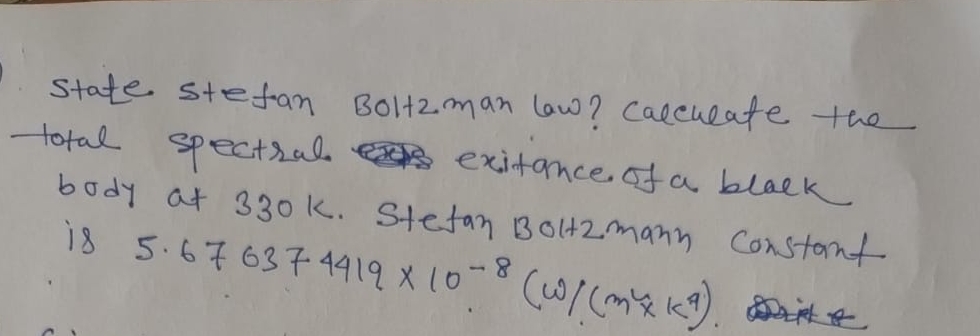 State Stefan Boltzman law? calculate the
total spectral exitance of a black
body at 330 K. Stefan Boltzmann Constant
is 5.6763744419 × 10⁻⁸ (W/(m² × K⁴).